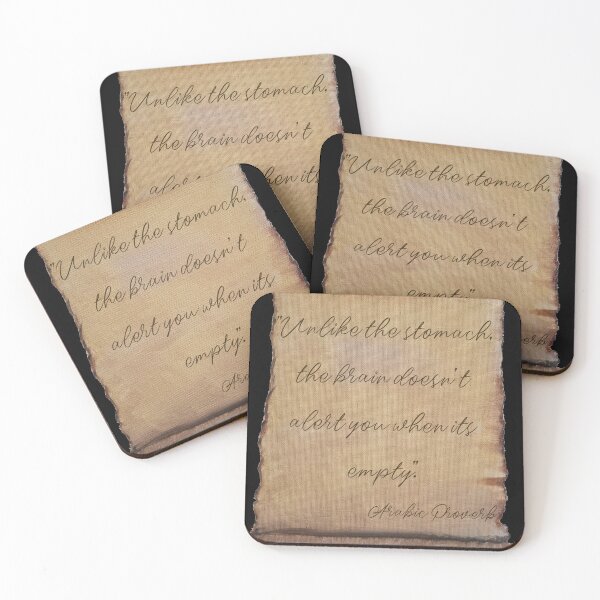 "Unlike the stomach,
the brain doesn't
when its
"Unlike the stomach,
the brain doesn't
alert you when its
empty".
"Unlike the stomach,
the brain doesn't
alert you when its
empty".
"Unlike the stomach,
the brain doesn't
alert you when its
empty".
Arabic Proverb